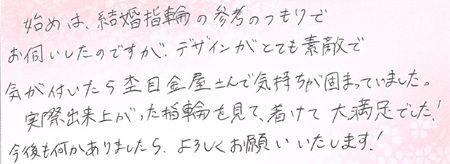 始めは、結婚指輪の参考のつもりで
お伺いしたのですが、デザインがとても素敵で
気が付いたら杢目金屋さんで気持ちが固まっていました。
実際出来上がった指輪を見て、着けて大満足でした!
今後も何かありましたら、よろしくお願いいたします!